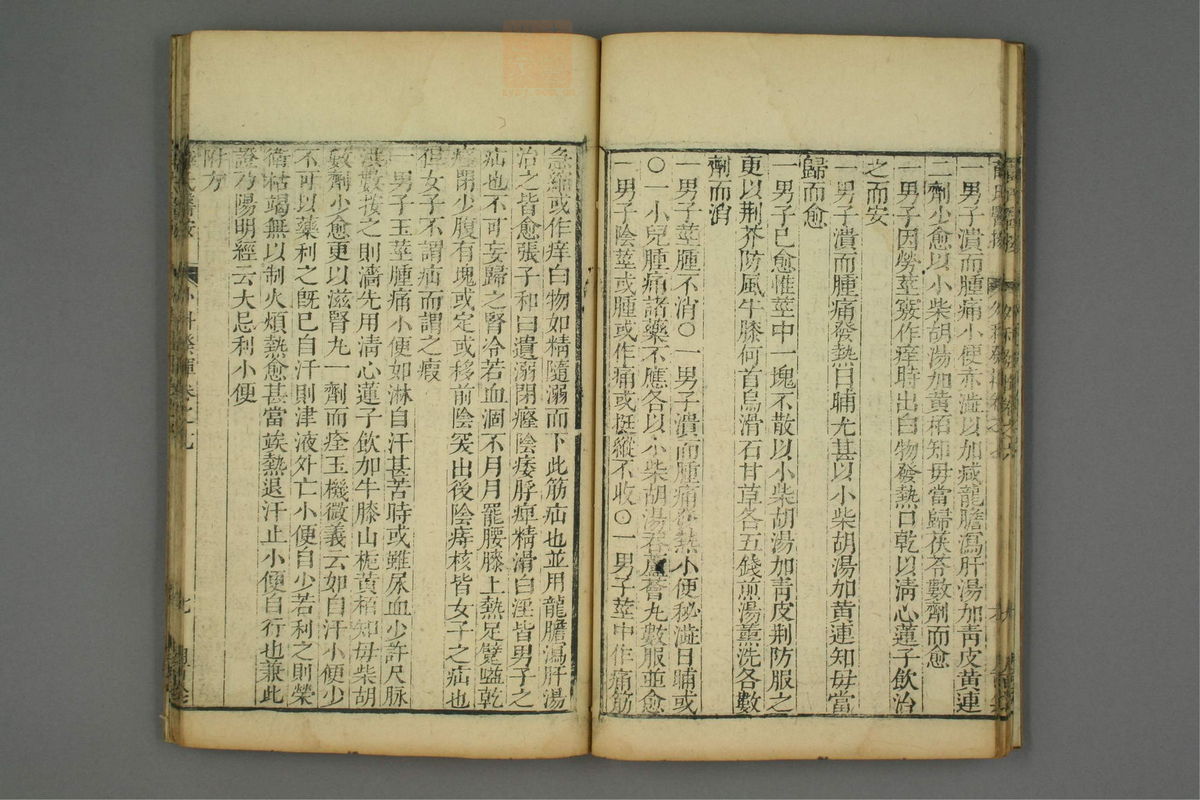 一男子潰而腫痛小便亦澁以加减龍膽瀉肝湯加靑皮黃連
二劑少愈以小柴胡湯加黃栢知毋當歸茯苓數劑而愈
一男子因勞莖竅作痒時出白物發熱口乾以淸心蓮子飮治
之而安
一男子潰而腫痛發熱日晡尤甚以小柴胡湯加黃連知毋當
歸而愈
一男子已愈惟莖中一塊不散以小柴胡湯加靑皮荆防服之
更以荆芥防風牛膝何首烏滑石甘草各五錢煎湯薰洗各數
劑而消
一男子莖腫不消○一男子潰而腫痛發熱小便秘澁日晡或
○一小兒腫痛諸藥不應各以小柴胡湯吞蘆薈丸數服並愈
一男子陰莖或腫或作痛或挺縱不收○一男子莖中作痛筋
急縮或作痒白物如精隨溺而下此筋疝也並用龍膽瀉肝湯
治之皆愈張子和曰遺溺閉癃陰痿脬痺精滑白淫皆男子之
疝也不可妄歸之腎冷若血涸不月月罷腰膝上熱足躄嗌乾
癃閉少腹有塊或定或移前陰突出後陰痔核皆女子之疝也
但女子不謂疝而謂之瘕
一男子玉莖腫痛小便如淋自汗甚苦時或雖尿血少許尺脉
洪數按之則濇先用淸心蓮子飮加牛膝山梔黃栢知毋柴胡
數劑少愈更以滋腎丸一劑而痊玉機微義云如自汗小便少
不可以藥利之旣已自汗則津液外亡小便自少若利之則榮
衛枯竭無以制火煩熱愈甚當竢熱退汗止小便自行也兼此
證乃陽明經云大忌利小便
附方
氏醫案 外科發揮卷之七 七